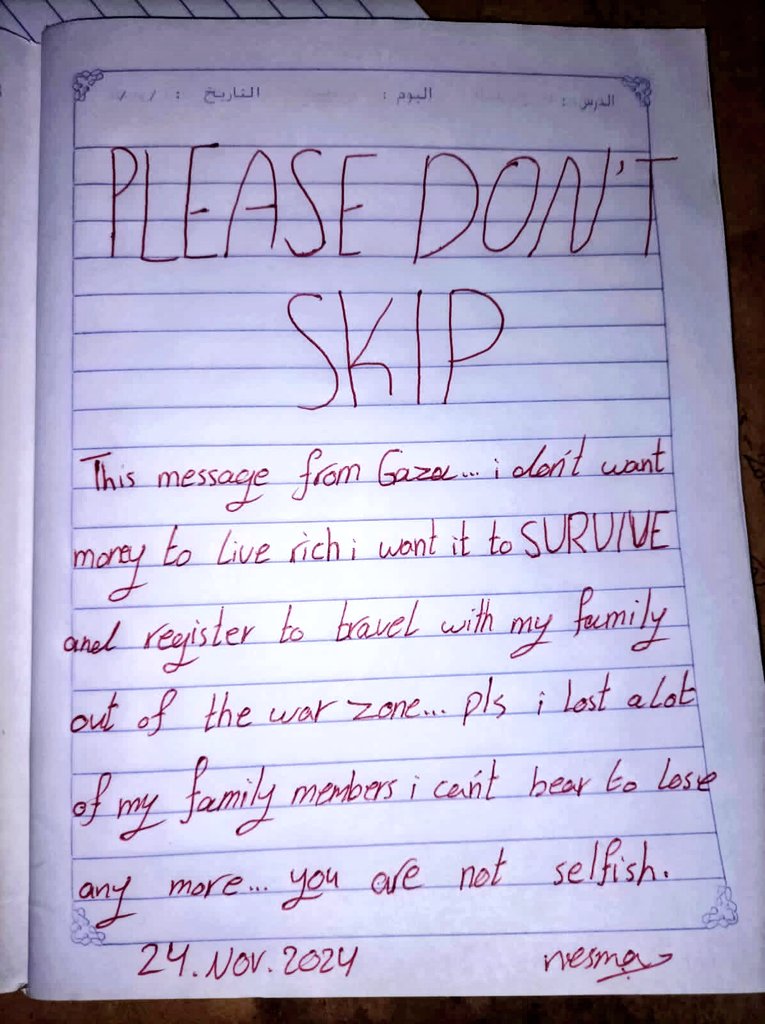 الدرس : اليوم : التاريخ : / /
PLEASE DON'T
SKIP
This message from Gaza... i don't want
money to live rich i want it to SURVIVE
and register to travel with my family
out of the war zone... pls i lost alot
of my family members i can't bear to lose
any more... you are not selfish.
24.Nov.2024 nesma